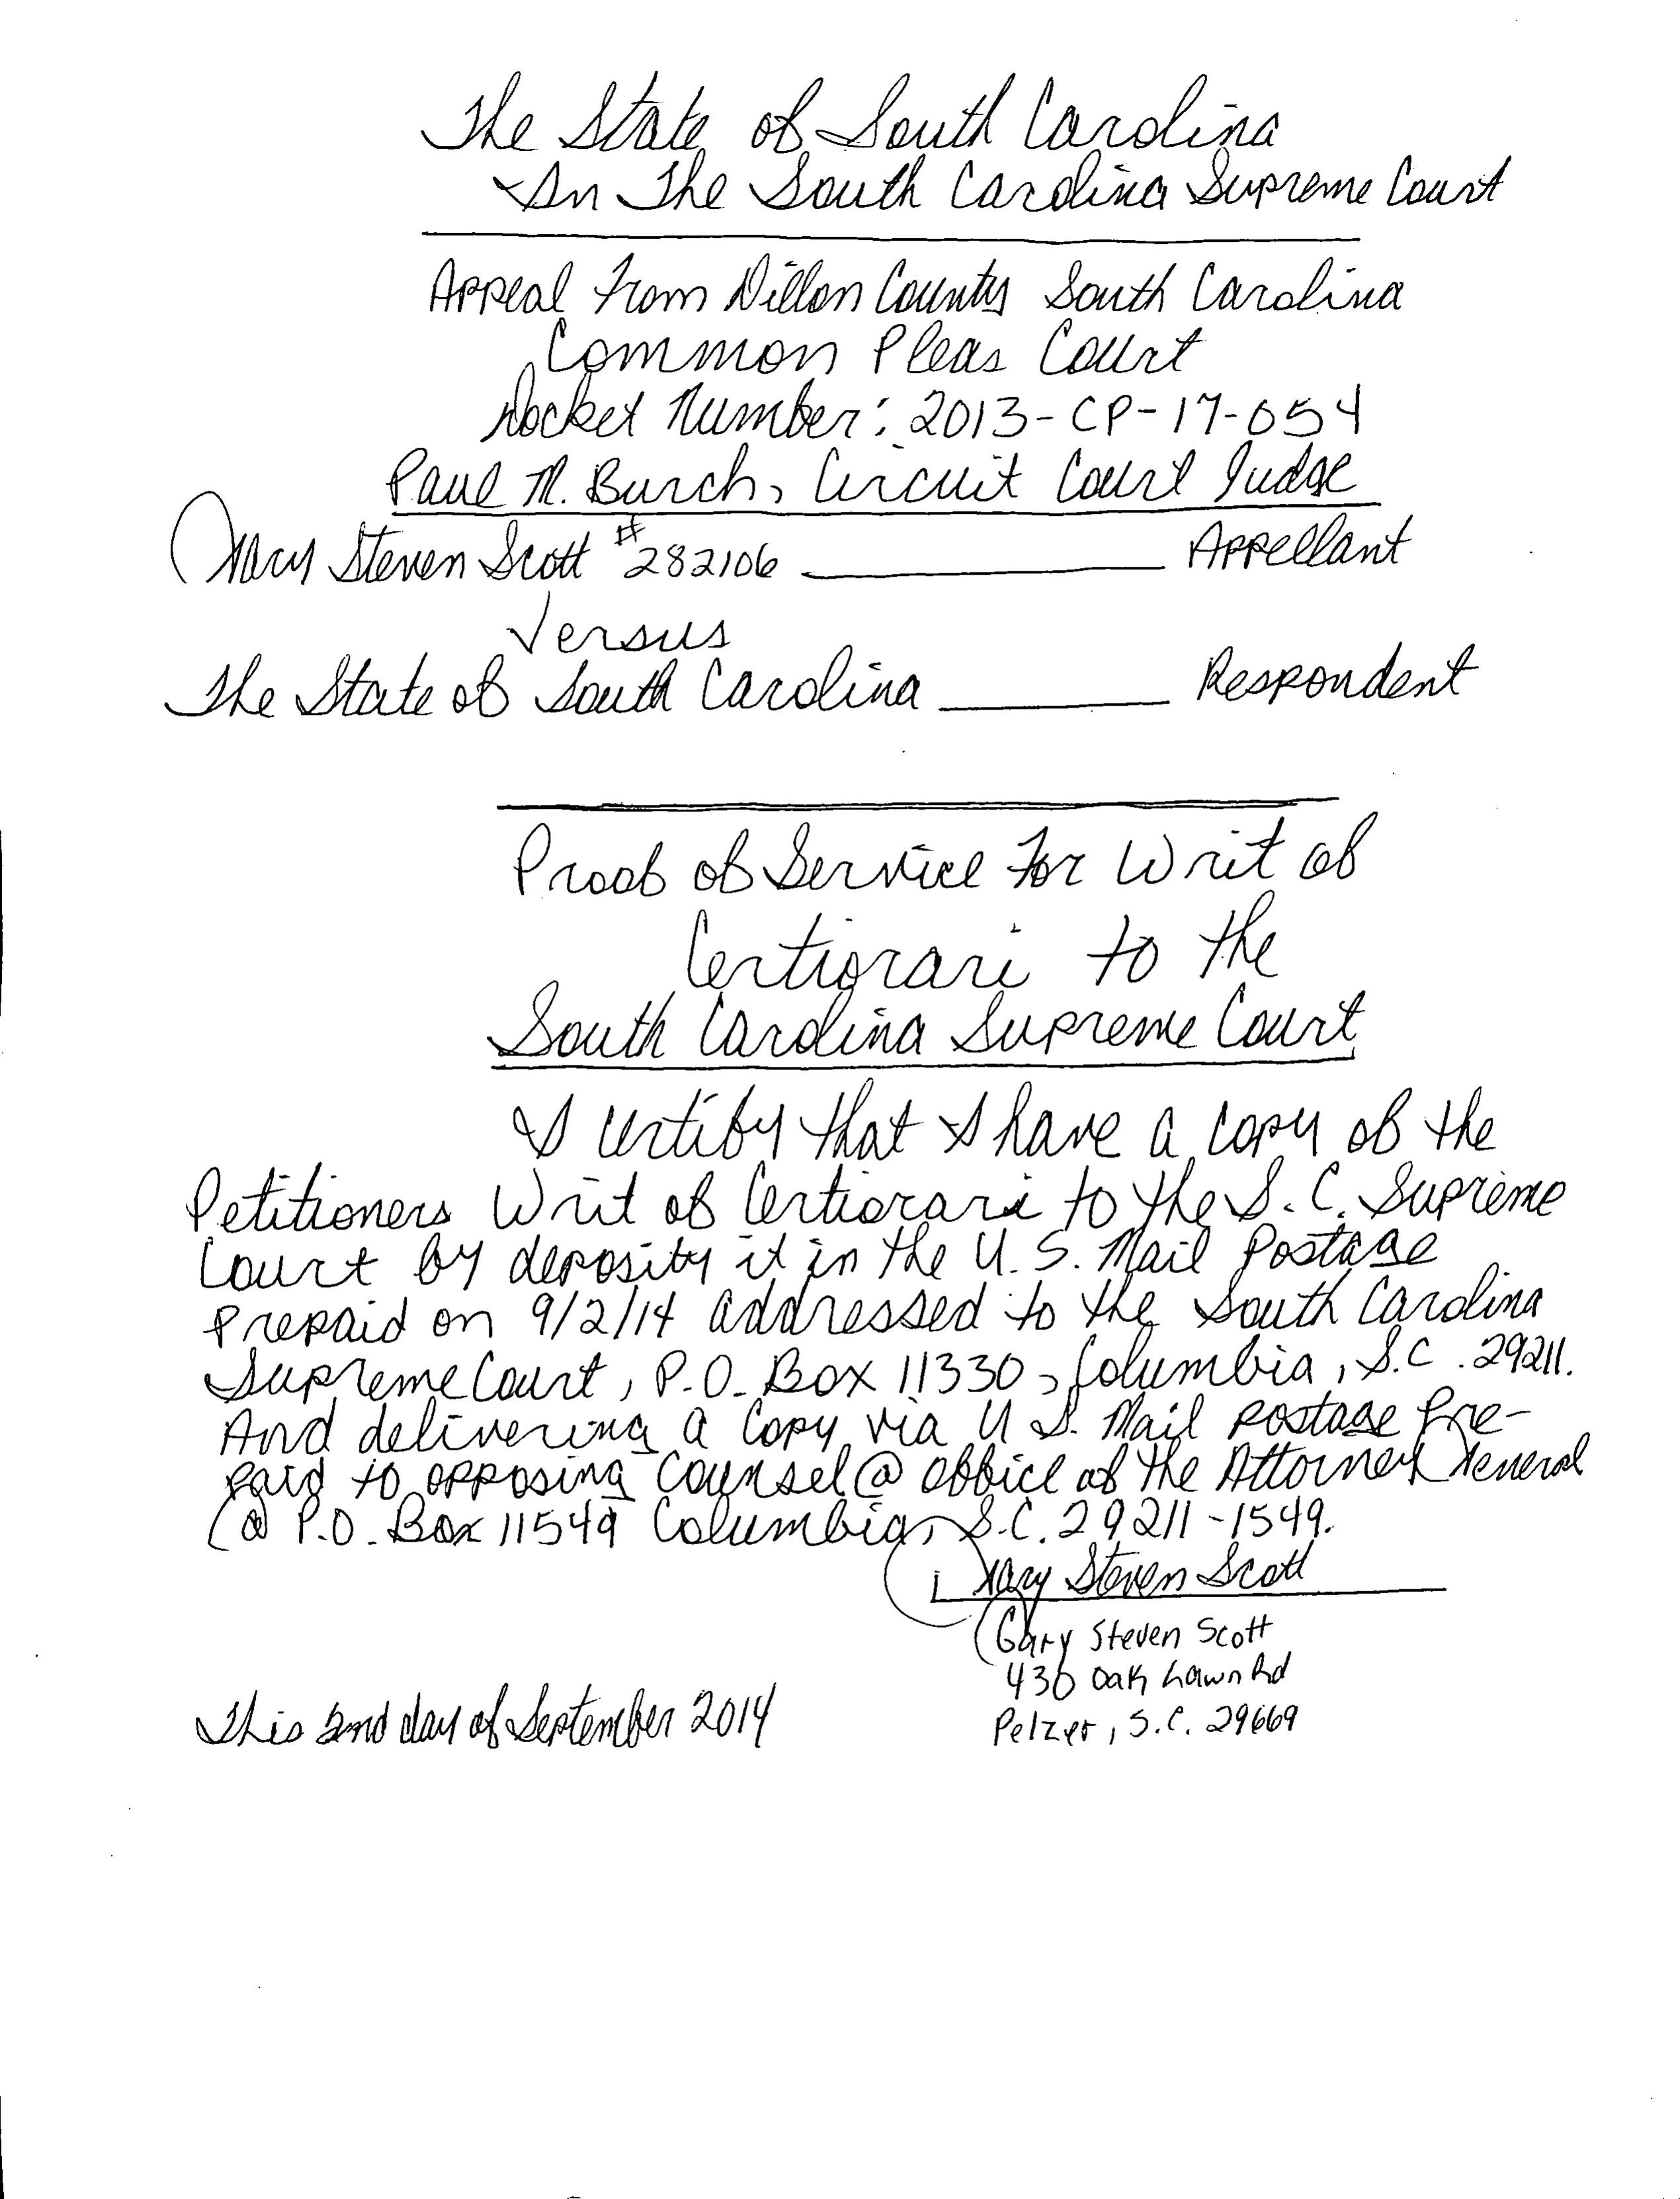 The State of South Carolina
In The South Carolina Supreme Court
Appeal From Dillon County South Carolina
Common Pleas Court
Docket Number: 2013-CP-17-054
Paul M. Burch, Circuit Court Judge
Gary Steven Scott #282106 Appellant
Versus
The State of South Carolina Respondent
Proof of Service For Writ of
Certiorari to the
South Carolina Supreme Court
I certify that I have a copy of the
Petitioners Writ of Certiorari to the S.C. Supreme
Court by deposity it in the U.S. Mail Postage
Prepaid on 9/2/14 addressed to the South Carolina
Supreme Court, P.O. Box 11330, Columbia, S.C. 29211.
And delivering a copy via U S. Mail postage Pre-
paid to opposing Counsel @ office of the Attorney General
@ P.O. Box 11549 Columbia, S.C. 29211-1549.
Gary Steven Scott
Gary Steven Scott
430 Oak Lawn Rd
Pelzer, S.C. 29669
This 2nd day of September 2014